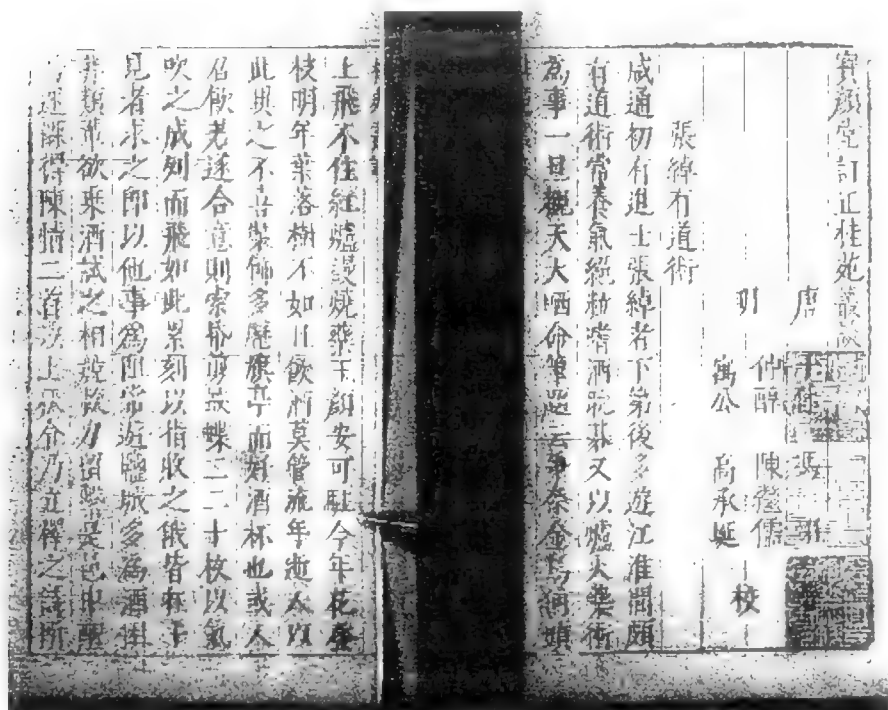 寶顏堂訂正桂苑叢談
唐
明 仲醇 陳繼儒
寓公 高承埏 校
張綽有道術
咸通初有進士張綽者下第後多遊江淮間頗
有道術常養氣絕粒嗜酒耽棊又以爐火藥術
為事一旦覩天大哂命筆題云爭奈金烏何頭
上飛不住紅爐謾燒藥玉顏安可駐今年花發
枝明年葉落樹不如且飲酒莫管流年逝人以
此異之不喜裝飾多歷旗亭而好酒杯也或人
召飲若遂合意則索紙剪蛺蝶二三十枚以氣
吹之成列而飛如此累刻以指收之俄皆在手
見者求之即以他事為阻常遊鹽城多為酒困
非類輩欲乘酒試之相競較力留繫是邑中醒
乃述課得陳情二首以上張令乃立釋之詩所